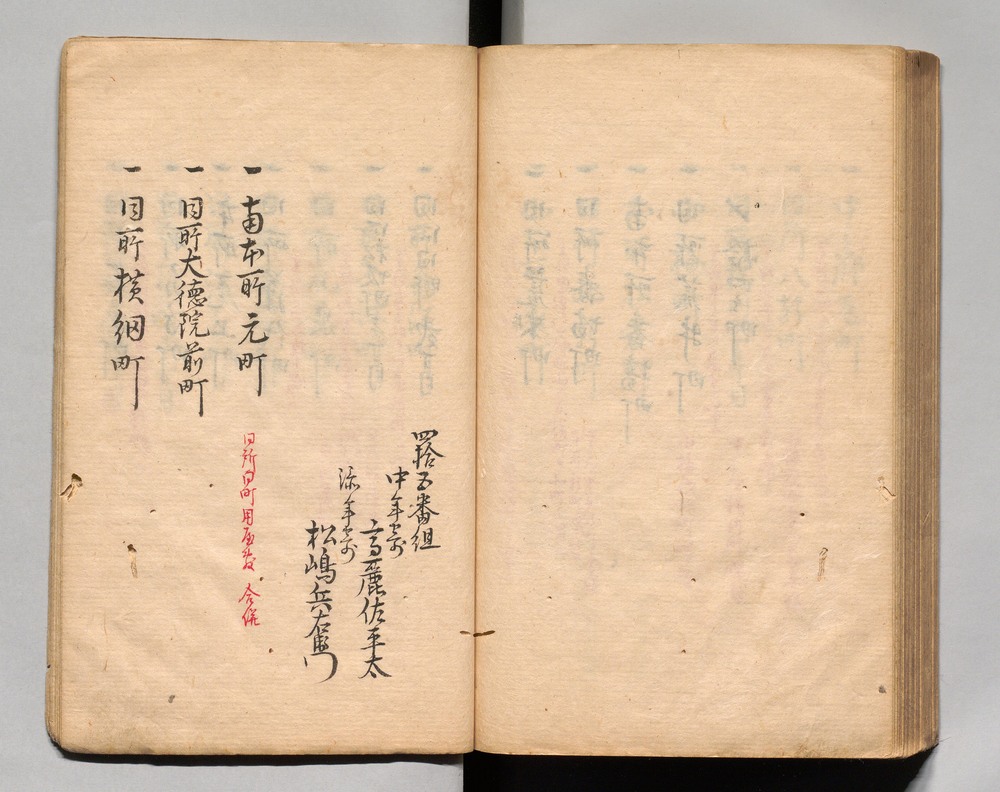 四拾五番組
中年寄
高麗佐平太
添年寄
松嶋兵右衛門
一 南本所元町
同所同町用屋敷 合併
一 同所大徳院前町
一 同所横網町